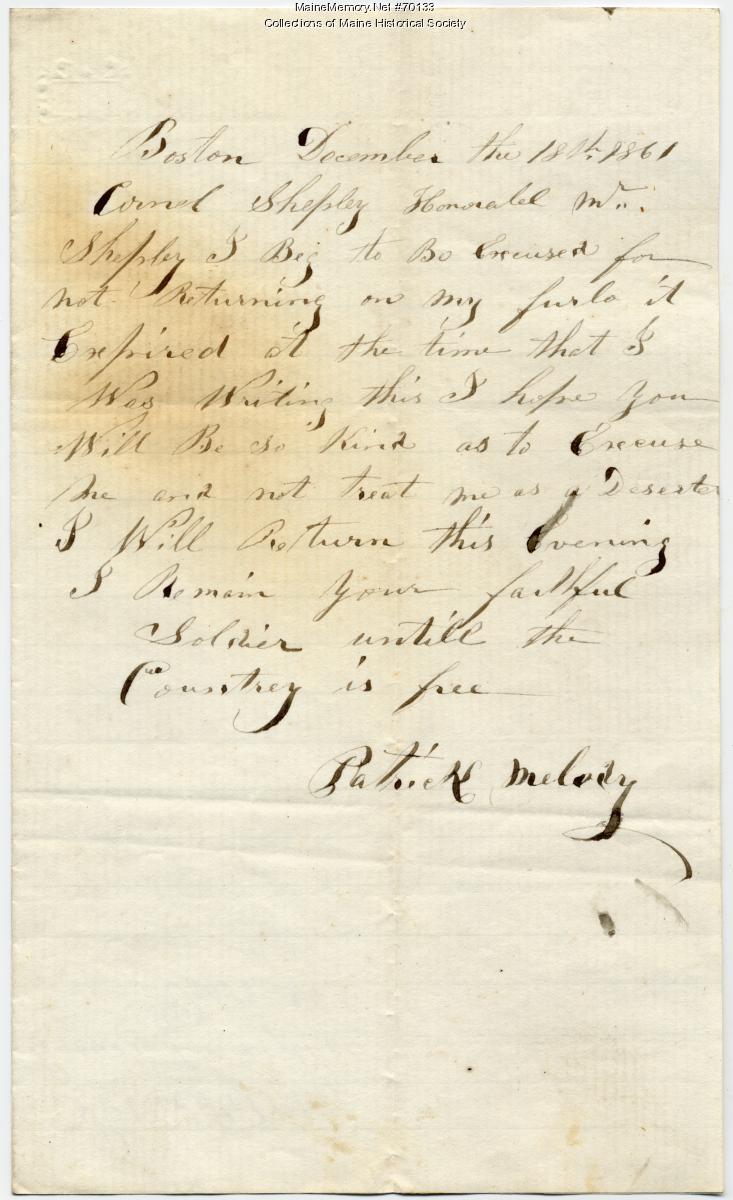 MaineMemory.Net #70133
Collections of Maine Historical Society
Boston December the 18th. 1861
Cornel Shepley Honorabel Mr..
Shepley I Beg to Be Excused for
not Returning on my furlo it
Expired at the time that I
Was Writing this I hope you
Will Be so Kind as to Excuse
me and not treat me as a Deserter
I Will Return this Evening
I Remain your faithful
Soldier untill the
Countrey is free
Patrick Melody